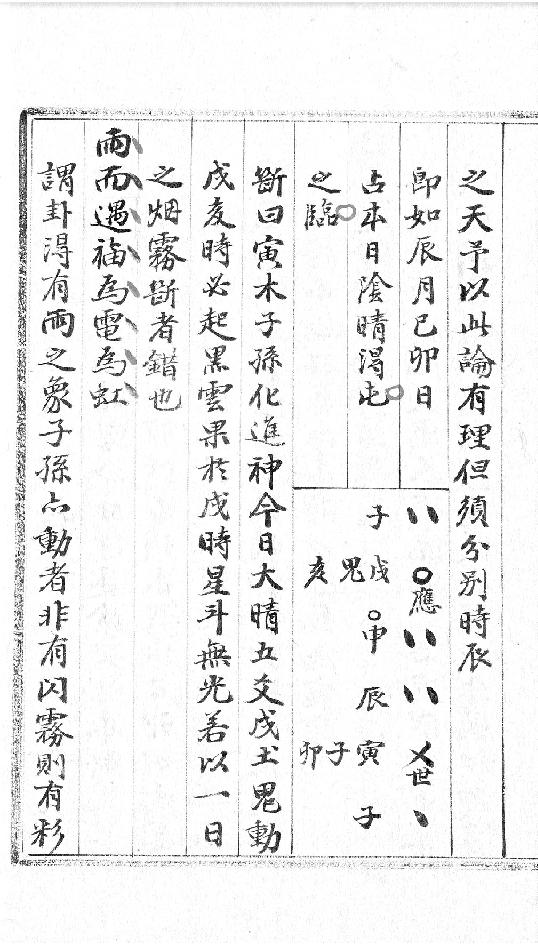 之天予以此論有理但須分别時辰
即如辰月已卯日
占本日陰晴淂屯
之臨
應 世
子 戌 申 辰 寅 子
鬼 子
亥 卯
斷曰寅木子孫化進神今日大晴五爻戌土鬼動
戌亥時必起黑雲果於戌時星斗無光若以一日
之烟霧斷者錯也
雨而遇福為電為虹
謂卦淂有雨之象子孫亦動者非有閃霧則有彩